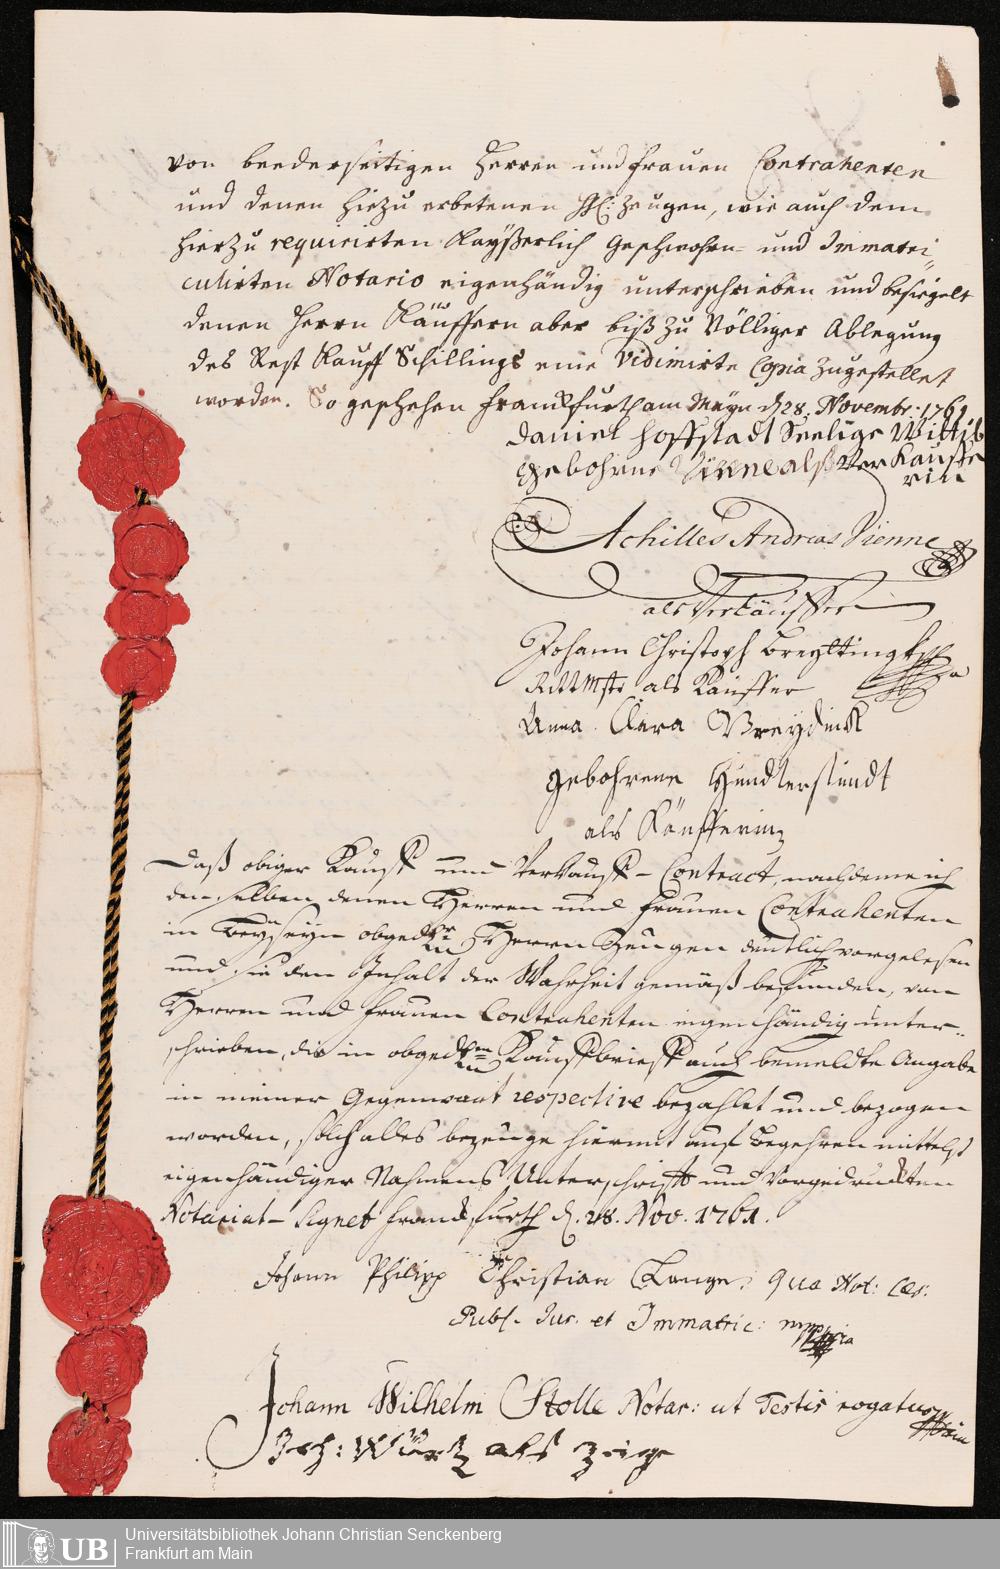 von beederseitigen Herren und Frauen Contrahenten
und denen hiezu erbetenen HH: Zeugen, wie auch dem
hierzu requirirten Kayßerlich Geschwohrn- und Immatri-
culirten Notario eigenhändig unterschrieben und besiegelt
denen Herrn Käuffern aber biß zu Völliger Ablegung
des Rest Kauff Schillings eine Vidimirte Copia zugestellet
worden. So geschehen Franckfurth am Mayn d. 28. Novembr: 1761
Daniel Hoffstadt Seelige Wittib
gebohrne Vienne alß Verkauffe
rin
Achilles Andreas Vienne
als Verkäuffer
Johann Christoph
Rittmstr als Käuffer
Anna Clara
gebohrene
als Käufferin
Daß obiger Kauff und Verkauff-Contract, nachdeme ich
denselben denen Herren und Frauen Contrahenten
in Beyseyn obged. Herren Zeugen deutlich vorgelesen
und sie den Inhalt der Wahrheit gemäß befunden, von
Herren und Frauen Contrahenten eigenhändig unter-
schrieben, die in obged. Kauffbrieff auch bemeldte Angabe
in meiner Gegenwart respective bezahlet und bezogen
worden, solch alles bezeuge hiermit auf Begehren mittelst
eigenhändiger Nahmens Unterschrifft und Vorgedruckten
Notariat-Signet Franckfurth d. 28. Nov. 1761.
Johann Philipp Christian Lange, qua Not: Cæs:
Publ. Jur. et Immatric: mppria
Johann Wilhelm Stolle Notar: ut Testis rogatus
Joh: Würtz als Zeige
UB
Universitätsbibliothek Johann Christian Senckenberg
Frankfurt am Main